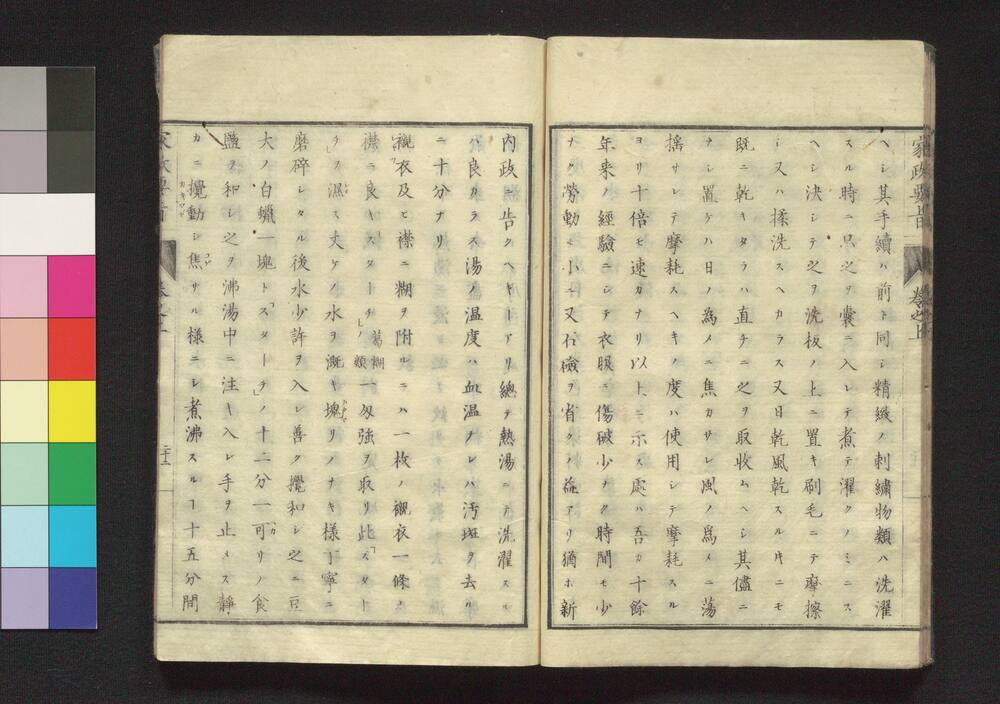 家政要旨 卷之上
ヘシ其手續ハ前ト同シ精緻ノ刺繍物類ハ洗濯
スル時ニ只之ヲ嚢ニ入レテ煮テ濯クノミニス
ヘシ決シテ之ヲ洗板ノ上ニ置キ刷毛ニテ摩擦
シ又ハ揉洗スヘカラス又日乾風乾スル𪜈ニモ
既ニ乾キタラハ直チニ之ヲ取收ムヘシ其儘ニ
ナシ置ケハ日ノ為メニ焦カサレ風ノ為メニ蕩
揺サレテ摩耗スヘキノ度ハ使用シテ摩耗スル
ヨリ十倍モ速カナリ以上ニ示ス處ハ吾カ十餘
年来ノ經驗ニシテ衣服ニ傷破少ナク時間モ少
ナク勞動モ小ニ又石鹼ヲ省クノ益アリ猶ホ新
内政ニ告クヘキヿアリ總テ熱湯ニテ洗濯スル
ハ良カラス湯ノ温度ハ血温ノレハ汚斑ヲ去ル
ニ十分ナリ
襯衣及ヒ襟ニ糊ヲ附ルニハ一枚ノ襯衣一條ノ
襟ニ良キスターチ」ノ葛糊類一匁強ヲ取リ此「スター
チ」ヲ濕ス丈ケノ水ヲ漑キ塊リノナキ様丁寧ニ
磨碎シタル後水少許ヲ入レ善ク攪和シ之ニ豆
大ノ白蠟一塊ト「スターチ」ノ十二分一可リノ食
鹽ヲ和シ之ヲ沸湯中ニ注キ入レ手ヲ止メス靜
カニ攪動シ焦サル様ニシ煮沸スルヿ十五分間